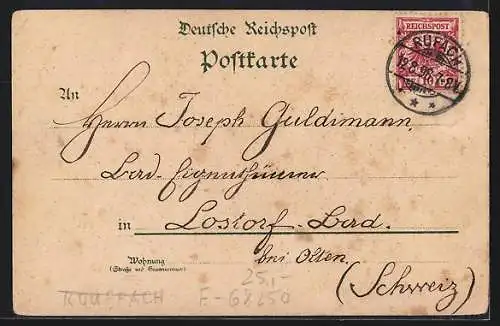 Deutsche Reichspost
Postkarte
REICHSPOST
RUFACH
An
Herrn Joseph Guldimann,
Bad-Eigenthümer
in Lostorf-Bad.
bei Olten.
(Schweiz)
Wohnung
(Straße und Hausnummer)
25,-
ROUFFACH F-68250